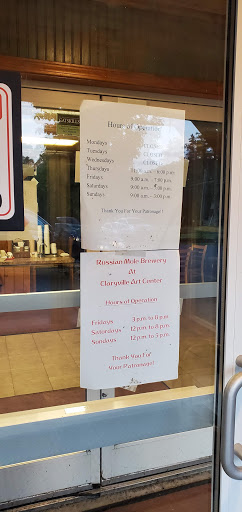 Hours of Operation
Mondays CLOSED
Tuesdays CLOSED
Wednesdays CLOSED
Thursdays
Fridays 9:00 a.m. - 7:00 p.m.
Saturdays 9:00 a.m.
Sundays 9:00 a.m. - 3:00 p.m.
Thank You For Your Patronage!
Russian Mule Brewery
At
Claryville Art Center
Hours of Operation
Fridays 3 p.m. to 8 p.m.
Saturdays 12 p.m. to 8 p.m.
Sundays 12 p.m. to 5 p.m.
Thank You For
Your Patronage!